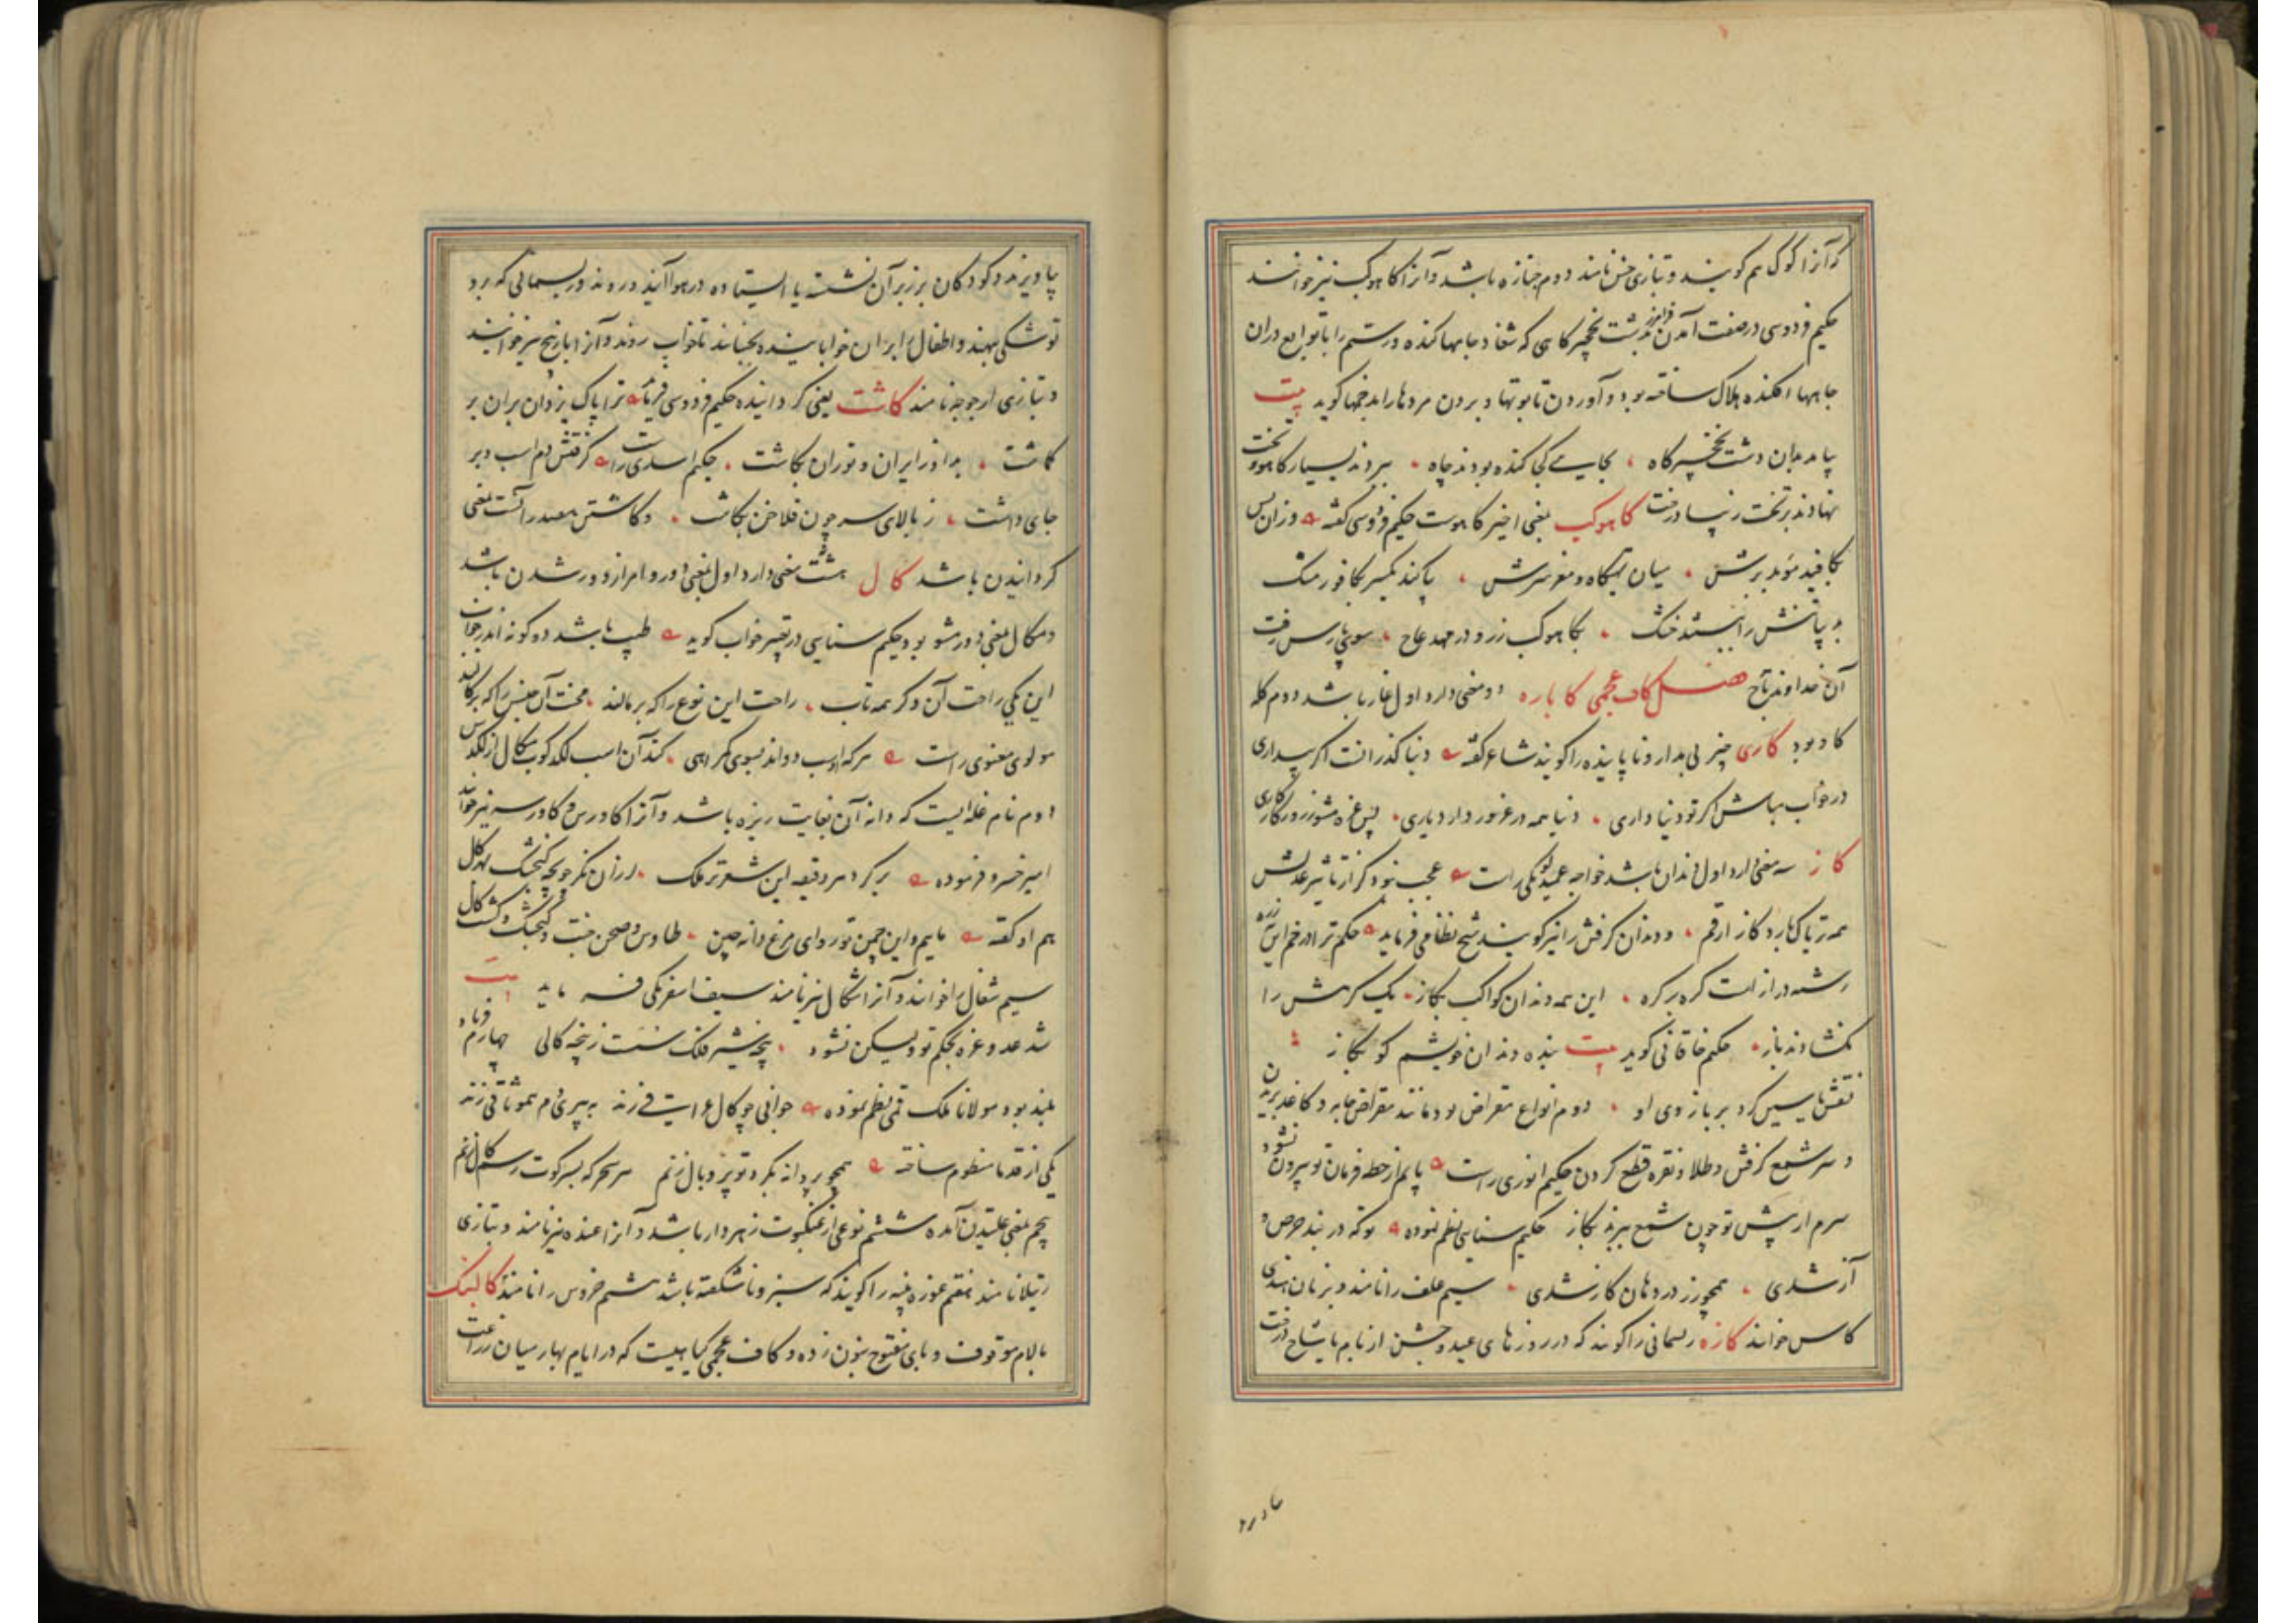 که آنرا کوک هم گویند و بتازی خس نامند دوم جنازه باشد و آنرا کاهوکب نیز خوانند
حکیم فردوسی در صفت آمدن فرامرز بدشت نخچیرگاهی که شغاد چاهها کنده و رستم را با توابع دران
چاهها افکنده هلاک ساخته بود و آوردن تابوتها و بردن مردها را بدخمها گوید بیت
بیامد بدان دشت نخچیرگاه بجایی کجا کنده بودند چاه ببردند بسیار کاهو و تخت
نهادند بر تخت زیبا درخت کاهوکب بمعنی اخیر کاهوست حکیم فردوسی گفته وزان پس
بکافید موبد برش میان تهیگاه و مغز سرش بیاکند یکسر بکافور مشک
به پیش را بستند خشک بکاهوکب زر و در مهد عاج سوی پارس رفت
آن خداوند تاج فصل کاف عجمی کاباره دو معنی دارد اول غار باشد دوم گله
گاو بود کاری چیز بی مدار و ناپاینده را گویند شاعر گفته دنیا گذرانست اگر بیداری
در خواب مباش گر تو دنیا داری دنیا همه در غرور دارد یاری پس غره مشو ز روزگار کاری
کاز سه معنی دارد اول دندان باشد خواجه عمید لوبکی راست عجب نبود گر از تاثیر عدلش
همه تریاک بارد کاز ارقم و دندان گرفتن را نیز گویند شیخ نظامی فرماید حکم ترا در خم این
رشته درازست گره بر گره این همه دندان کواکب بکاز یک گرهش را
نگشادند باز حکیم خاقانی گوید بیت بنده دندان خویشم کو بکاز
نقش یاسین کرد بر بازوی او دوم انواع مقراض بود مانند مقراض جامه و کاغذ بریدن
و سر شمع گرفتن و طلا و نقره قطع کردن حکیم انوری راست پایم از خط فرمان تو بیرون نشود
سرم ار پیش تو چون شمع ببرند بکاز حکیم سنایی نظم نموده تو که در بند حرص و
آز شدی همچو زر در دهان کاز شدی سیم علف را نامند و بزبان هندی
کاس خوانند کازه ریسمانی را گویند که در روزهای عید و جشن از بام یا شاخ درخت
بیاویزند و کودکان بر زبر آن نشسته یا ایستاده در هوا آیند و روند و ریسمانی که برو
توشکی نهند و اطفال را بران خوابانیده بجنبانند تا خواب روند و آنرا باز پیچ نیز خوانند
و بتازی ارجوجه نامند کاشت یعنی گردانیده حکیم فردوسی فرماید ترا پاک یزدان بران بر
کاشت بد او ز ایران و توران بکاشت حکیم اسدی راست گرفتش دم اسب و بر
جای داشت ز بالای سر چون فلاخن بکاشت و کاشتن مصدر آنست بمعنی
گردانیدن باشد کال هشت معنی دارد اول بمعنی دور و امر از دور شدن باشد
و مکال بمعنی دور مشو بود حکیم سنایی در تعبیر خواب گوید طیب باشد دو گونه اندر خواب
این یکی راحت آن دگر همه تاب راحت این نوع را که بر مالند محنت آن جنس را که بر کالند
مولوی معنوی راست هر که اسب دواند بسوی گمراهی کند آن اسب لگد کوب بکال از لگدش
دوم نام غله ایست که دانه آن بغایت ریزه باشد و آنرا کاورس و کاورسه نیز خوانند
امیر خسرو فرموده
هم او گفته ماییم و این چمن تو روای مرغ دانه چین طاوس و صحن جنت و گنجشک و کشت کال
سیم شغال را خوانند و آنرا شکال نیز نامند سیف اسفرنگی فرماید بیت
شد عدو غره بحکم تو ولیکن نشود پنجه شیر فلک سست ز پنجه کالی چهارم فریاد
بلند بود مولانا ملک قمی نظم نموده
یکی از قدما منظوم ساخته همچو پروانه بگرد تو پر و بال زنم هر سحر که بسر کویت رسم کال زنم
پنجم بمعنی غلتیدن آمده ششم نوعی از عنکبوت زهردار باشد و آنرا غنده نیز نامند و بتازی
رتیلا نامند هفتم غوزه پنبه را گویند که سبز و ناشکفته باشد هشتم خروس را نامند کالبنگ
بالام موقوف و بای مفتوح بنون زده و کاف عجمی گیاهیست که در ایام بهار میان زراعت